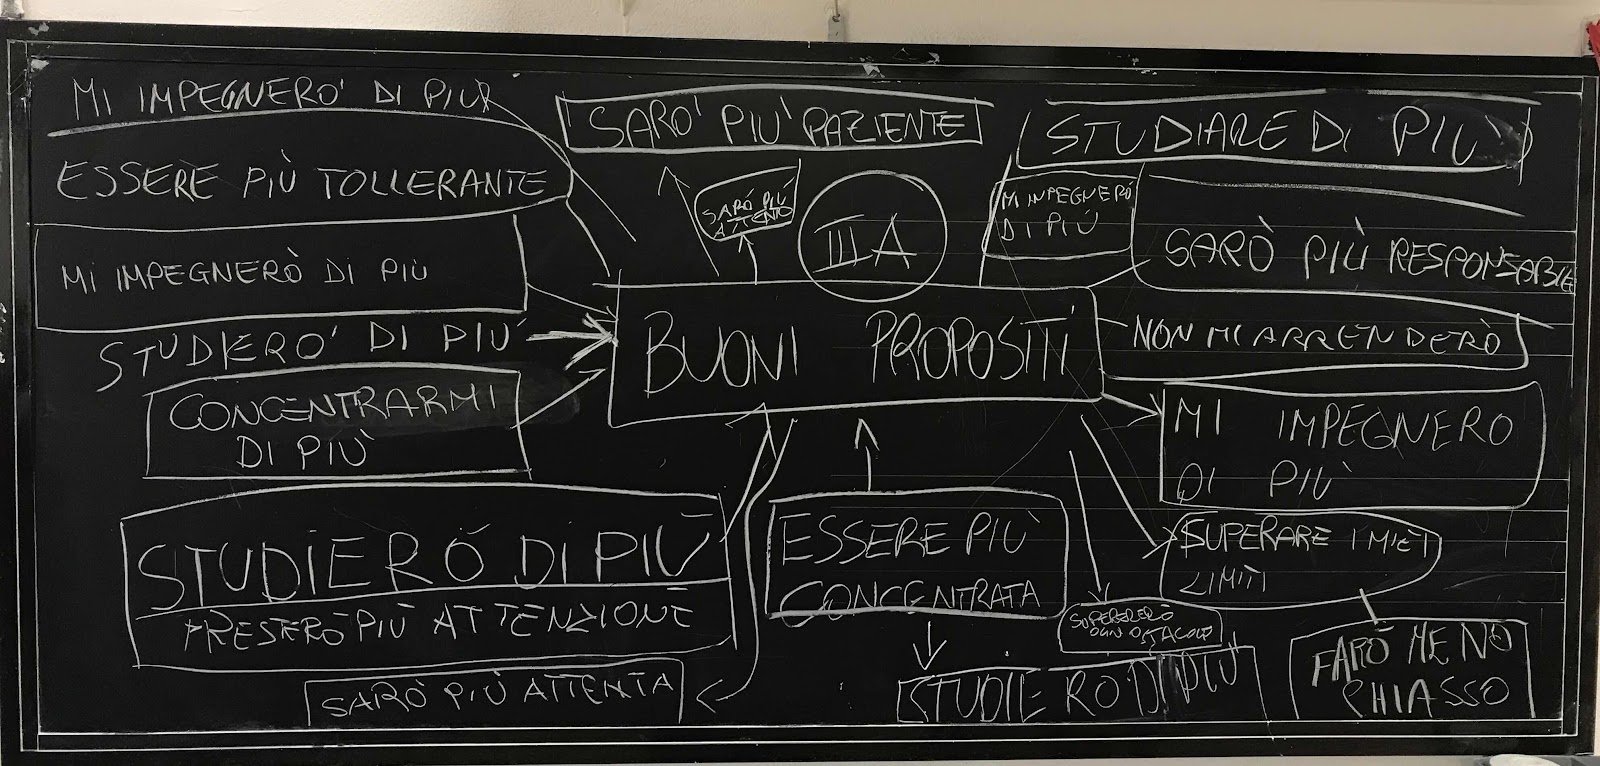 MI IMPEGNERO' DI PIÙ
ESSERE PIÙ TOLLERANTE
MI IMPEGNERÒ DI PIÙ
STUDIERO' DI PIÙ
CONCENTRARMI
DI PIÙ
STUDIERÓ DI PIÙ
PRESTERÒ PIÙ ATTENZIONE
SARÒ PIÙ ATTENTA
SARO' PIU' PAZIENTE
SARÓ PIÚ
ATTENTO
III A
BUONI PROPOSITI
ESSERE PIÙ
CONCENTRATA
STUDIERO DI PIÙ
STUDIARE DI PIÙ
MI IMPEGNERÓ
DI PIÙ
SARÒ PIÙ RESPONSABILE
NON MI ARRENDERÒ
MI IMPEGNERO
DI PIÙ
SUPERARE I MIEI
LIMITI
OGNI OSTACOLO
FARÒ MENO
CHIASSO